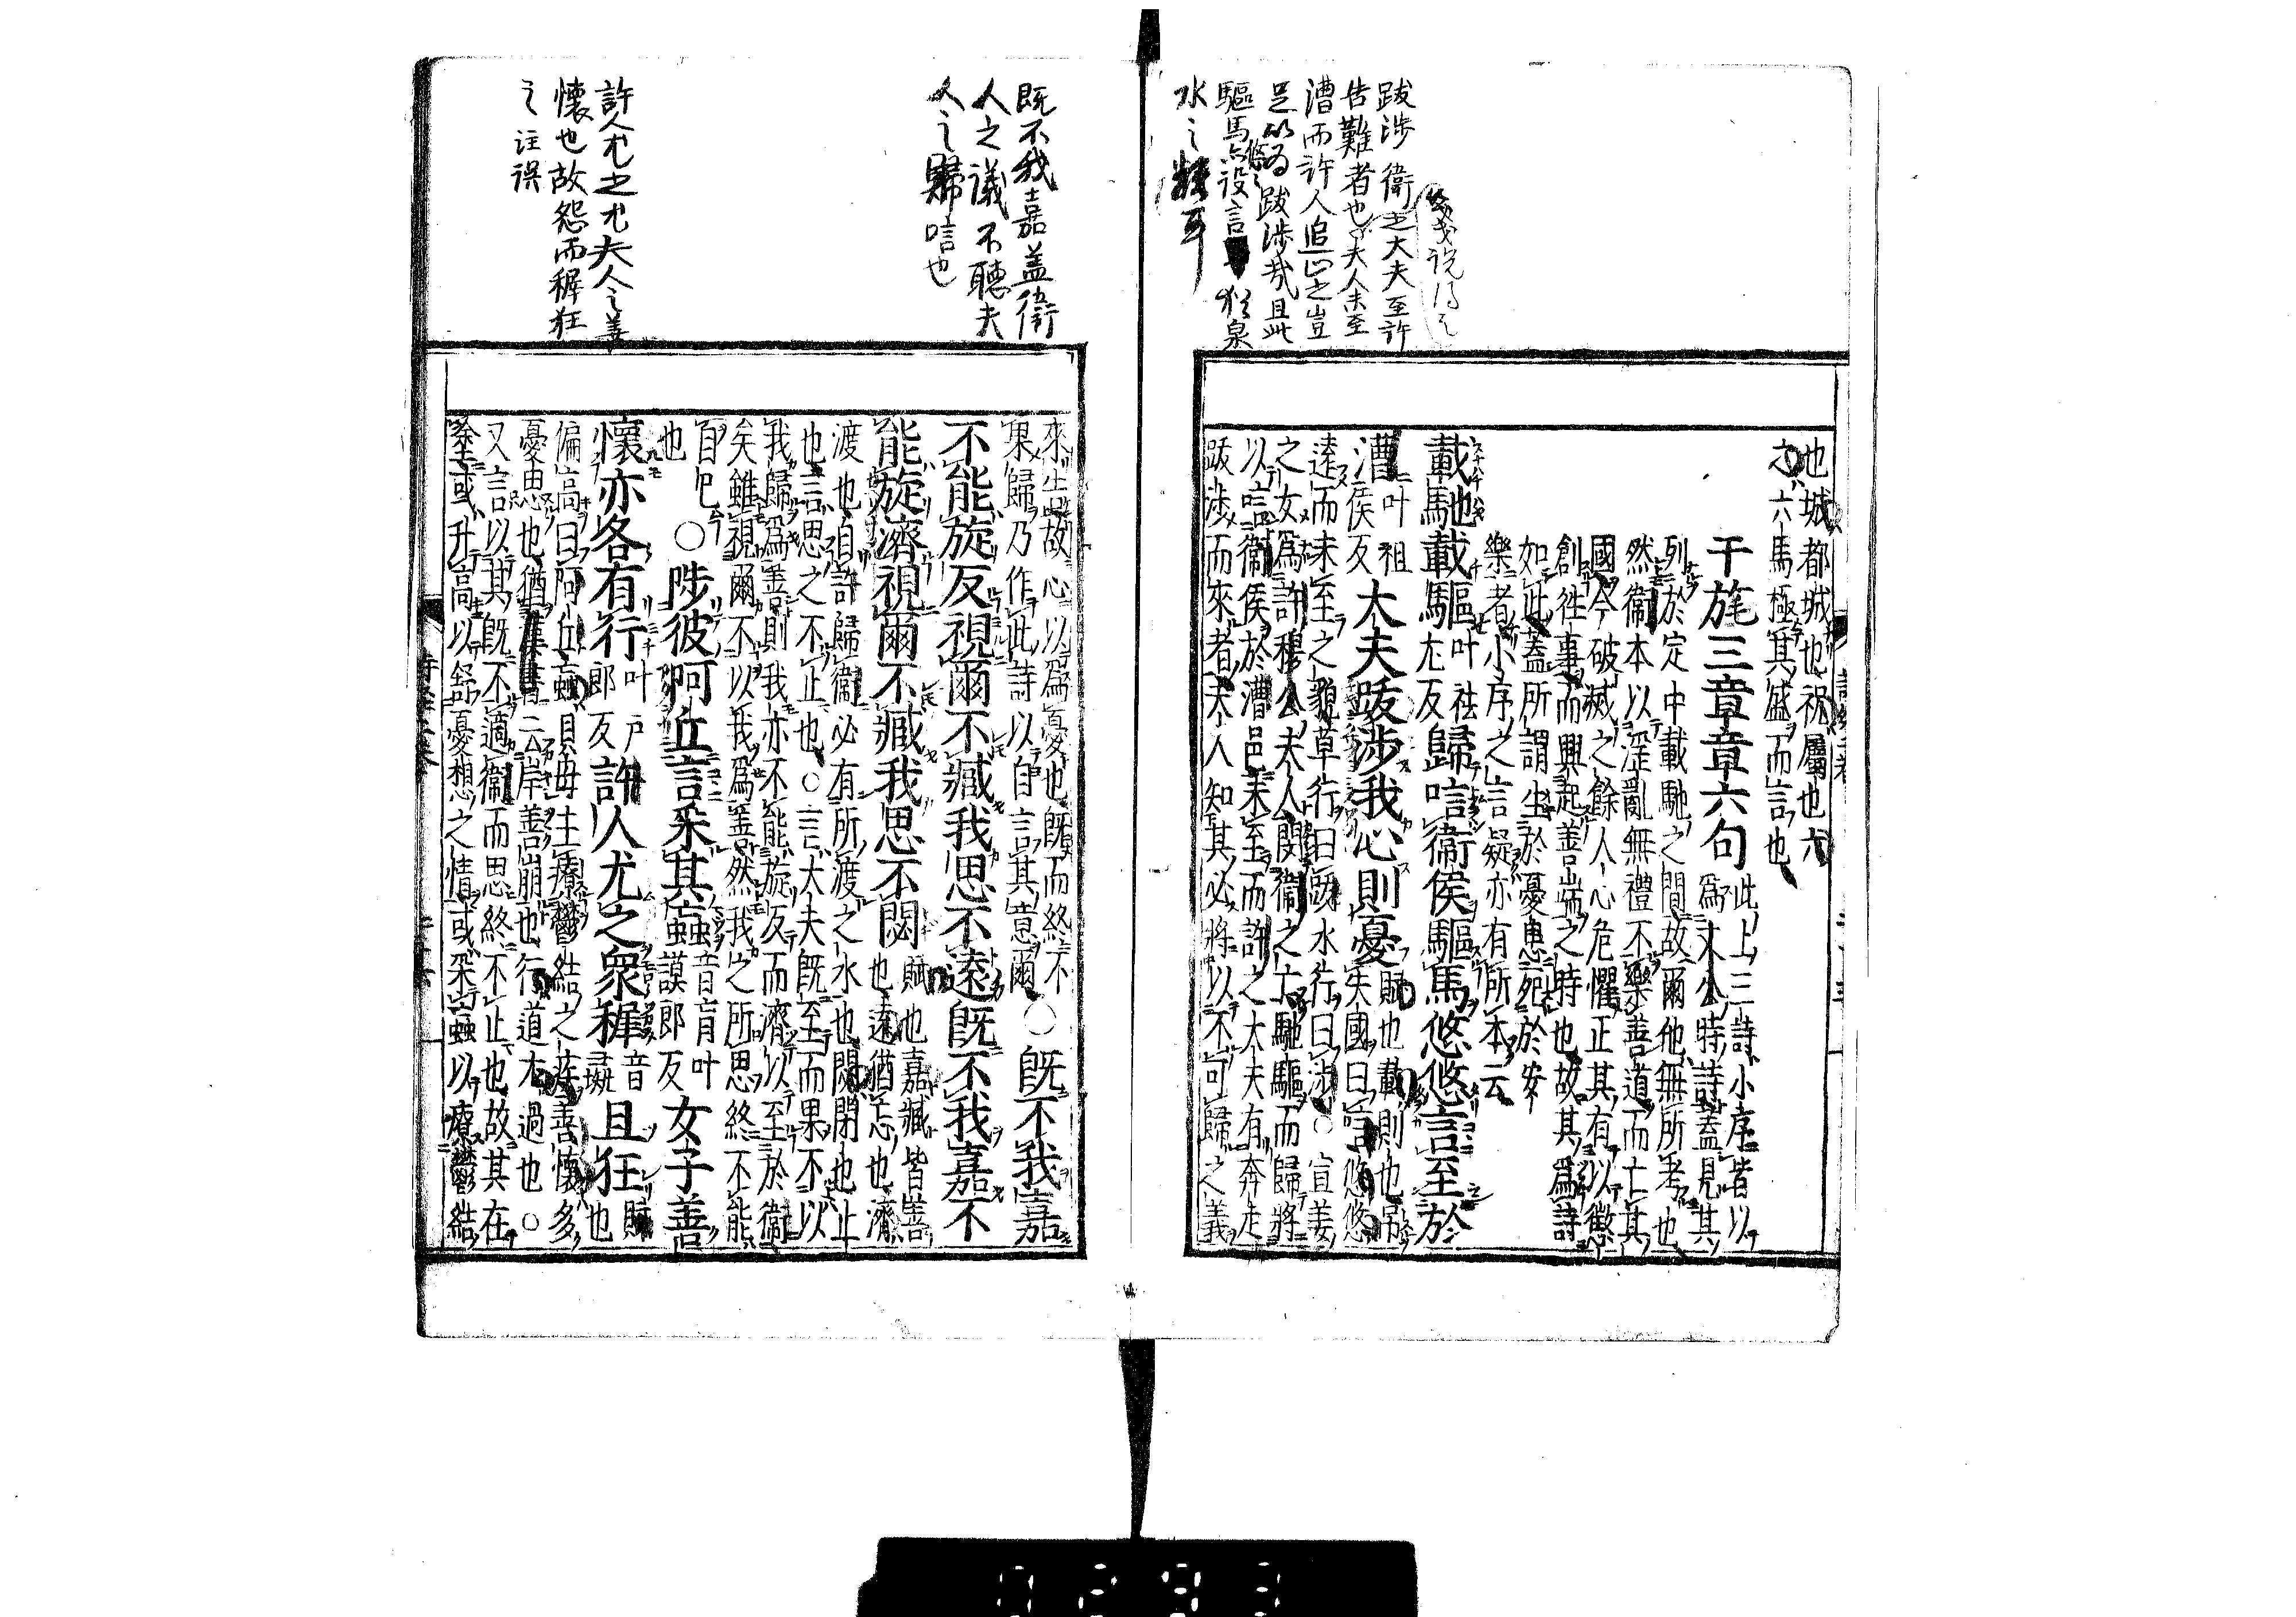 跋渉 衛之大夫至許
告難者也夫人未至
漕而許人追止之豈
足以為跋渉哉且此
水之耳
也城都城也祝屬也六
之六馬極其盛而言也
干旄三章章六句
此上三詩小序皆以
爲文公時詩蓋見其
列於定中載馳之間故爾他無所考也
然衛本以淫亂無禮不樂善道而亡其
國今破滅之餘人心危懼正其有以懲
創往事而興起善端之時也故其爲詩
如此蓋所謂生於憂患死於安
樂者小序之言疑亦有所本云
載馳載驅叶祛尤反歸唁衛侯驅馬悠悠言至於
漕叶徂侯反大夫跋涉我心則憂賦也載則也弔失國曰唁悠悠
遠而未至之貌草行曰跋水行曰涉○宣姜
之女爲許穆公夫人閔衛之亡馳驅而歸將
以唁衛侯於漕邑未至而許之大夫有奔走
跋涉而來者夫人知其必將以不可歸之義
既不我嘉蓋衛
人之議不聽夫
人之歸唁也
許人尤之尤夫人之善
懷也故怨而穉狂
之 注誤
來告故心以爲憂也既而終不
果歸乃作此詩以自言其意爾○既不我嘉
不能旋反視爾不臧我思不遠既不我嘉不
能旋濟視爾不臧我思不閟賦也嘉臧皆善也遠猶忘也濟
渡也自許歸衛必有所渡之水也閟閉也止
也言思之不止也○言大夫既至而果不以
我歸爲善則我亦不能旋反而濟以至於衛
矣雖視爾不以我爲善然我之所思終不能
自已也○陟彼阿丘言采其蝱音盲叶謨郎反女子善
懷亦各有行叶戶郎反許人尤之衆穉音且狂賦也
偏高曰阿丘蝱貝母主療鬱結之疾善懷多
憂思也猶漢書云岸善崩也行道尤過也○
又言以其既不適衛而思終不止也故其在
塗或升高以舒憂想之情或采蝱以療鬱結